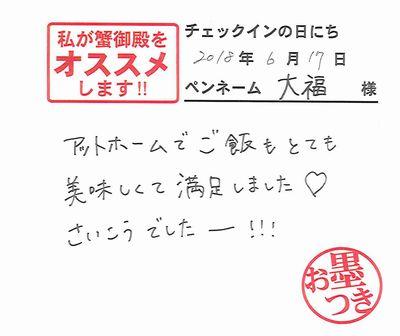 私が蟹御殿を
オススメ
します!!
チェックインの日にち
2018年6月17日
ペンネーム 大福 様
アットホームでご飯もとても
美味しくて満足しました♡
さいこうでしたー!!!
お墨つき